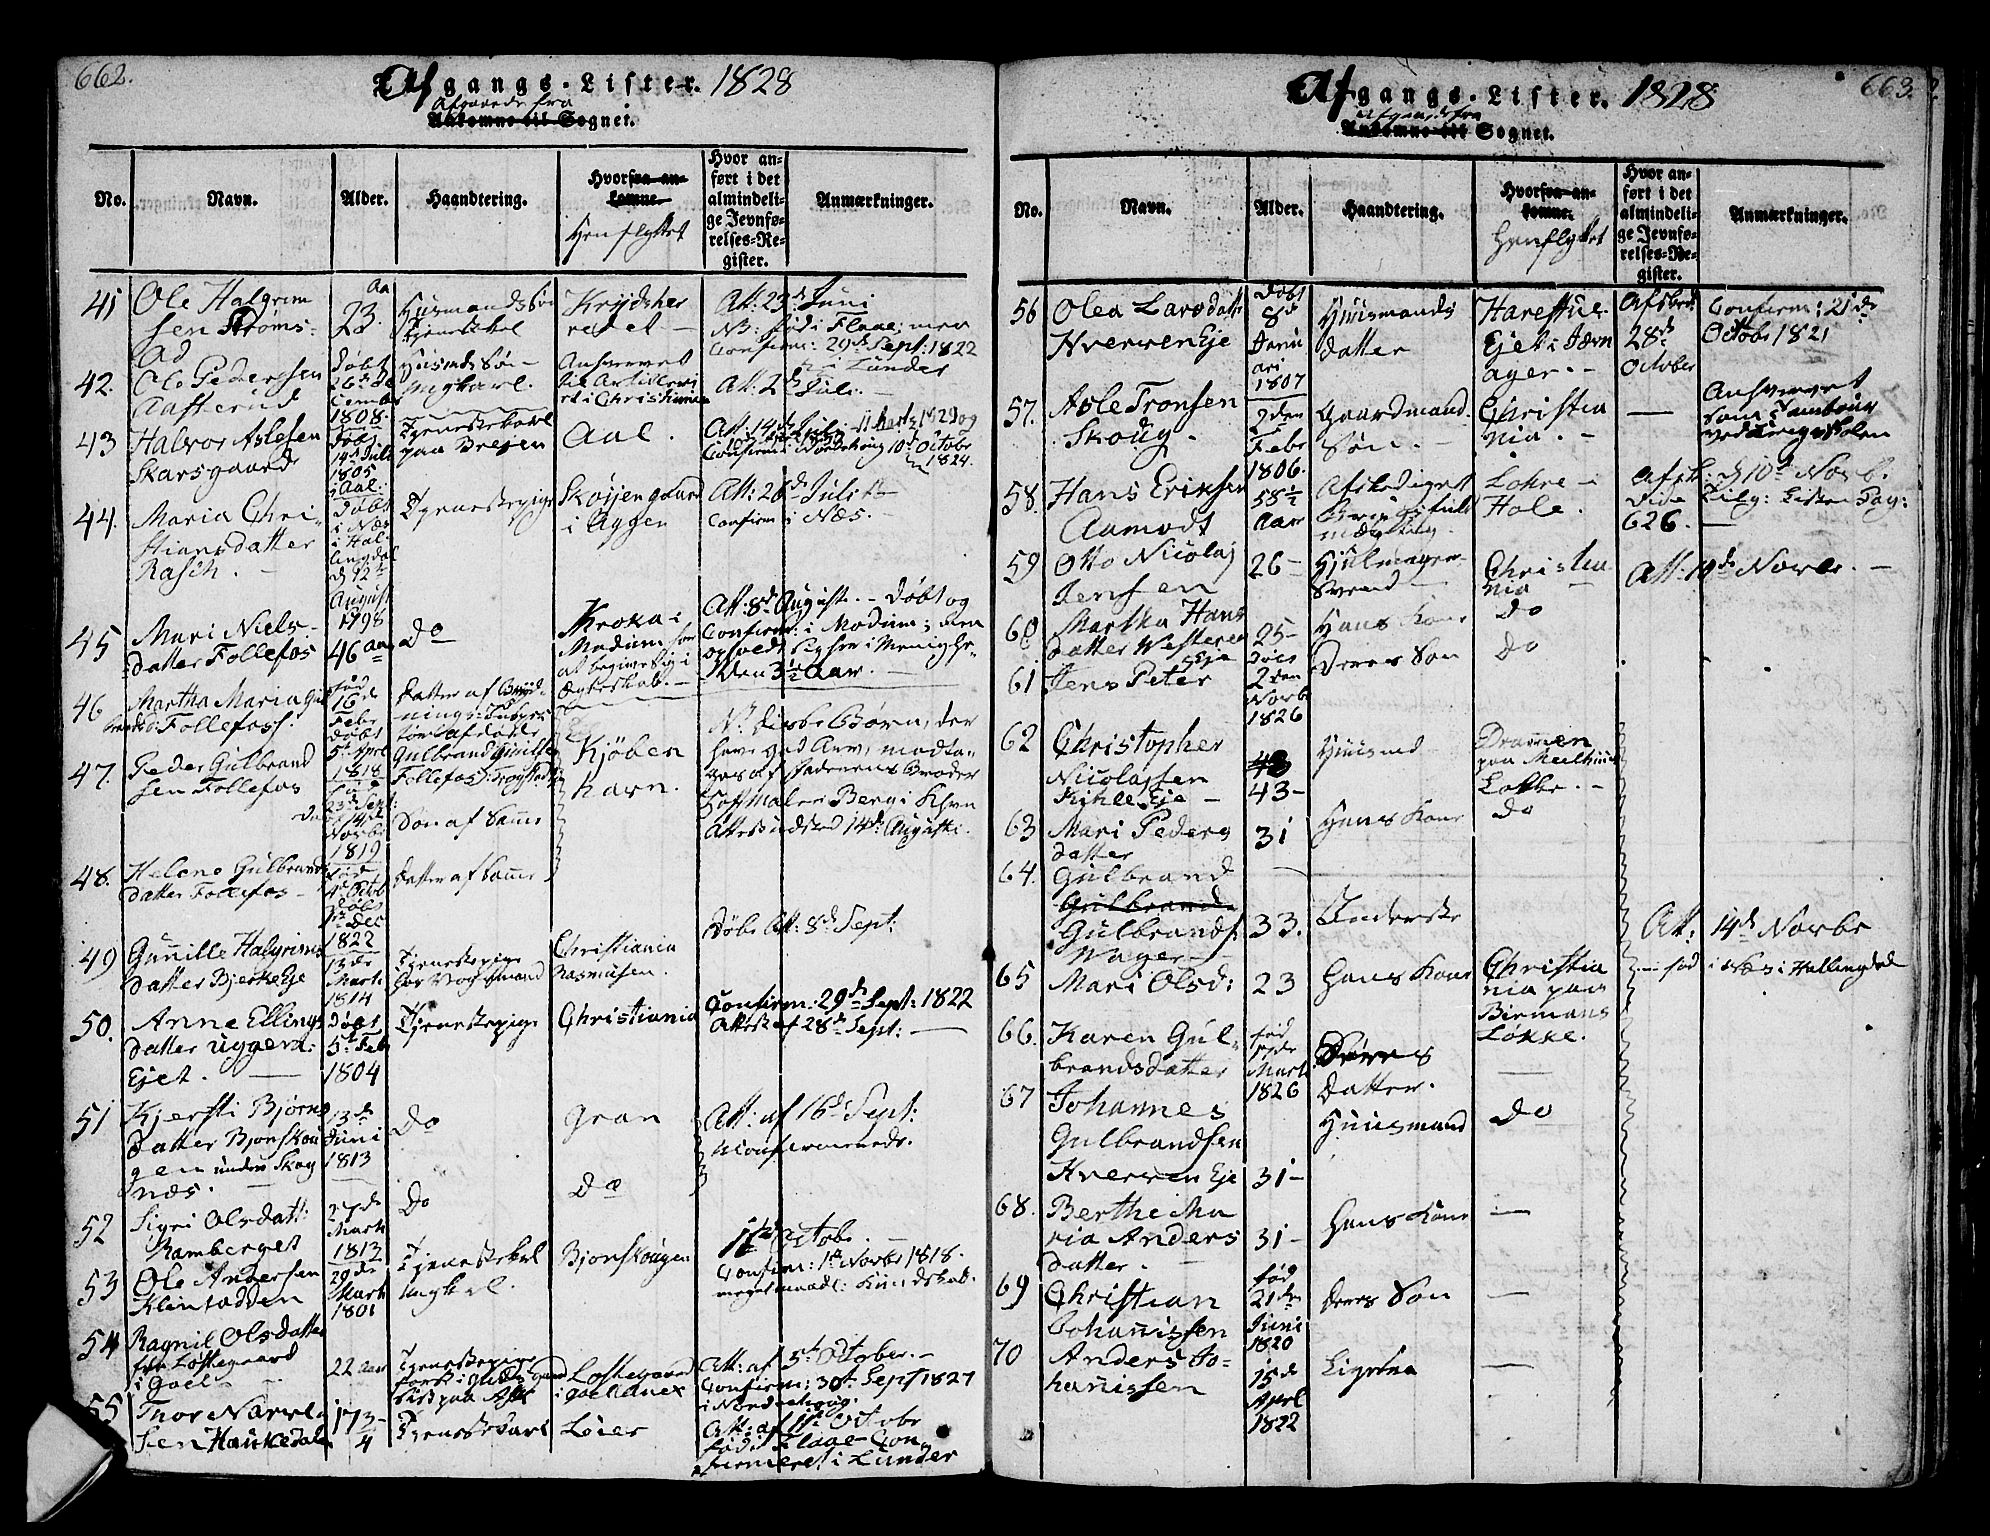 662.
Afgangs-Lister. 1828
Afgaaede fra
Ankomne til Sognet.
No.
Navn.
Alder.
Haandtering.
Hvorfra an-
komne.
Henflyttet
Hvor an-
ført i det
almindeli-
ge Jevnfø-
relses-Re-
gister.
Anmærkninger.
41
Ole Halgrim
sen Strøms-
Aa
23.
Huusmandssøn
Tjenestekarl
Krydsher
redet
Att: 23d Juni
NB: født i Flaae; men
Confirm: 29d Sept: 1822
i Lunder
42.
Ole Pedersen
Aasterud
Døbt
26de De
cembr
1808.
Huusmds Søn
Ungkarl.
Christiania
Att: 2d Juli
43
Halvor Aslesen
Skarsgaard
Døbt
14d Juli
1805
i Aal:
Tjenestekarl
paa Bregen
Aal.
Att: 14d Juli
10d Octobr
1824.
44.
Maria Chri-
stiansdatter
Rasch.
Døbt
i Næs
i Hal
lingdal
d 12te
August
1798
Tjenestepige
i Uggen
Att: 26d Juli
Confirm i Næs.
45
Mari Niels-
datter Follefos
46 Aar
Do
Kroka i
Modum for
at begive sig i
Egteskab.
Att: 8d August. - Døbt og
Confirm: i Modum; den
Men 3½ Aar.
46
Martha Maria Gul
brandsd: Follefoss.
født
16d
Febr
døbt
5t Aprl
1818
Datter af Bryd-
nings:
tør afdøde
Gulbrand Gunilles
Follefos
Kjøben
havn.
No disse Børn, der
have
ges af Faderens Broder
Hofmaler Berg i Khvn
Attest udsted 14d Augusti.
47.
Peder Gulbrand
sen Follefos
23d Sept:
døbt 14d
Novbr
1819
Søn af Samme
48.
Helene Gulbrands
datter Follefos
4d Octob
døbt
1t Dec
1822
Datter af Samme
49
Gunille Halgrims
datter Bjerke Eje
12de
Marti
1814
Tjenestepige
Christiania
Rasmusen.
Døbe Att: 8d Sept:
50.
Anne Ellings
datter Uggerd.
Ejet.
Døbt
5t Feb
1804
Tjenestepige
Christiania
Confirm: 29d Sept: 1822
Attest af 28d Sept:
51
Kjersti Bjørns
datter Bjønskou
gen under Skag
næs.
13d
Juni
1813
Do
Gran
Att: af 16d Sept:
uconfirmerede.
52
Sigri Olsdatt:
Ramberget
27de
Marti
1813
Do
Do
53
Ole Andersen
Klintadden
29de
Marti
1801
Tjenestekarl
Ungkrl.
Bjønskougen
11te Octobr.
Confirm: 1te Novbr 1818.
meget maadl: Kundskab.
54
Ragnil Olsdatter
fra Løstegaard
i Goel
22 aar
Tjenestepige
Løstegaard
i Goel Anex
Att: af 5te October.
Confirm: 30t Sept 1827
i Norderhoug.
55
Thor Narvel
sen Haukedalen
17 3/4
Tjenestekarl
Løier
Att: af 11te Octobr
født i Flaae Con
firmeret i Lunder
663.
Afgangs-Lister. 1828
Afgaaede fra
Ankomne til Sognet.
No.
Navn.
Alder.
Haandtering.
Hvorfra an-
komne.
Henflyttet
Hvor an-
ført i det
almindeli-
ge Jevnfø-
relses-Re-
gister.
Anmærkninger.
56
Olea Larsdatt
Hverven Eje
Døbt
8d
Janu
ari
1807
Huusmands
datter
Harestue-
Ejet i Jævn
ager.
28d
October
Confirm: 21de
Octobr 1821
57.
Asle Tronsen
Skoug.
2den
Febr
1806.
Gaardmand.
Søn.
Christia
nia.
—
Anhvervet
som Tambour
58.
Hans Eriksen
Aamodt
58½
Aar
Afskediget
Lohre i
Hole.
Afsk: d 10d Novb.
Vide Tilg: Listen Pag:
626.
59
Otto Nicolaj
Jensen
26
Hjulmager
Svend
Christia
nia
Att: 10de Novbr.
60
Martha Hans
datter Western
Eje
25
Hans Kone
Do
61
Jens Peter
Døbt
2den
Novb
1826
Deres Søn
Do
62
Christopher
Nicolajsen
Kihle Eje
43
43
Huusmd
Drammen
Løkke.
63
Mari Peders
datter
31
Hans Kone
Do
64.
Gulbrand
Gulbrands
Gulbrandsen
Wager
33.
Inderste
Att: 14d Novbr
65
Mari Olsd:
23
Hans Kone
Christia
nia paa
Biermans
Løkke.
født i Næs i Hallingdal
66.
Karen Gul-
brandsdatter
født
Marti
1826
Deres
Datter.
—
67
Johannes
Gulbrandsen
Hverven Eje
31
Huusmand
Do
68.
Berthe Ma
ria Anders
datter.
31
Hans Kone
—
69
Christian
Johannissen
født
21de
Juni
1820
Deres Søn
—
70
Anders Jo-
hannissen
15d
Aprl
1822
Ligesaa
—